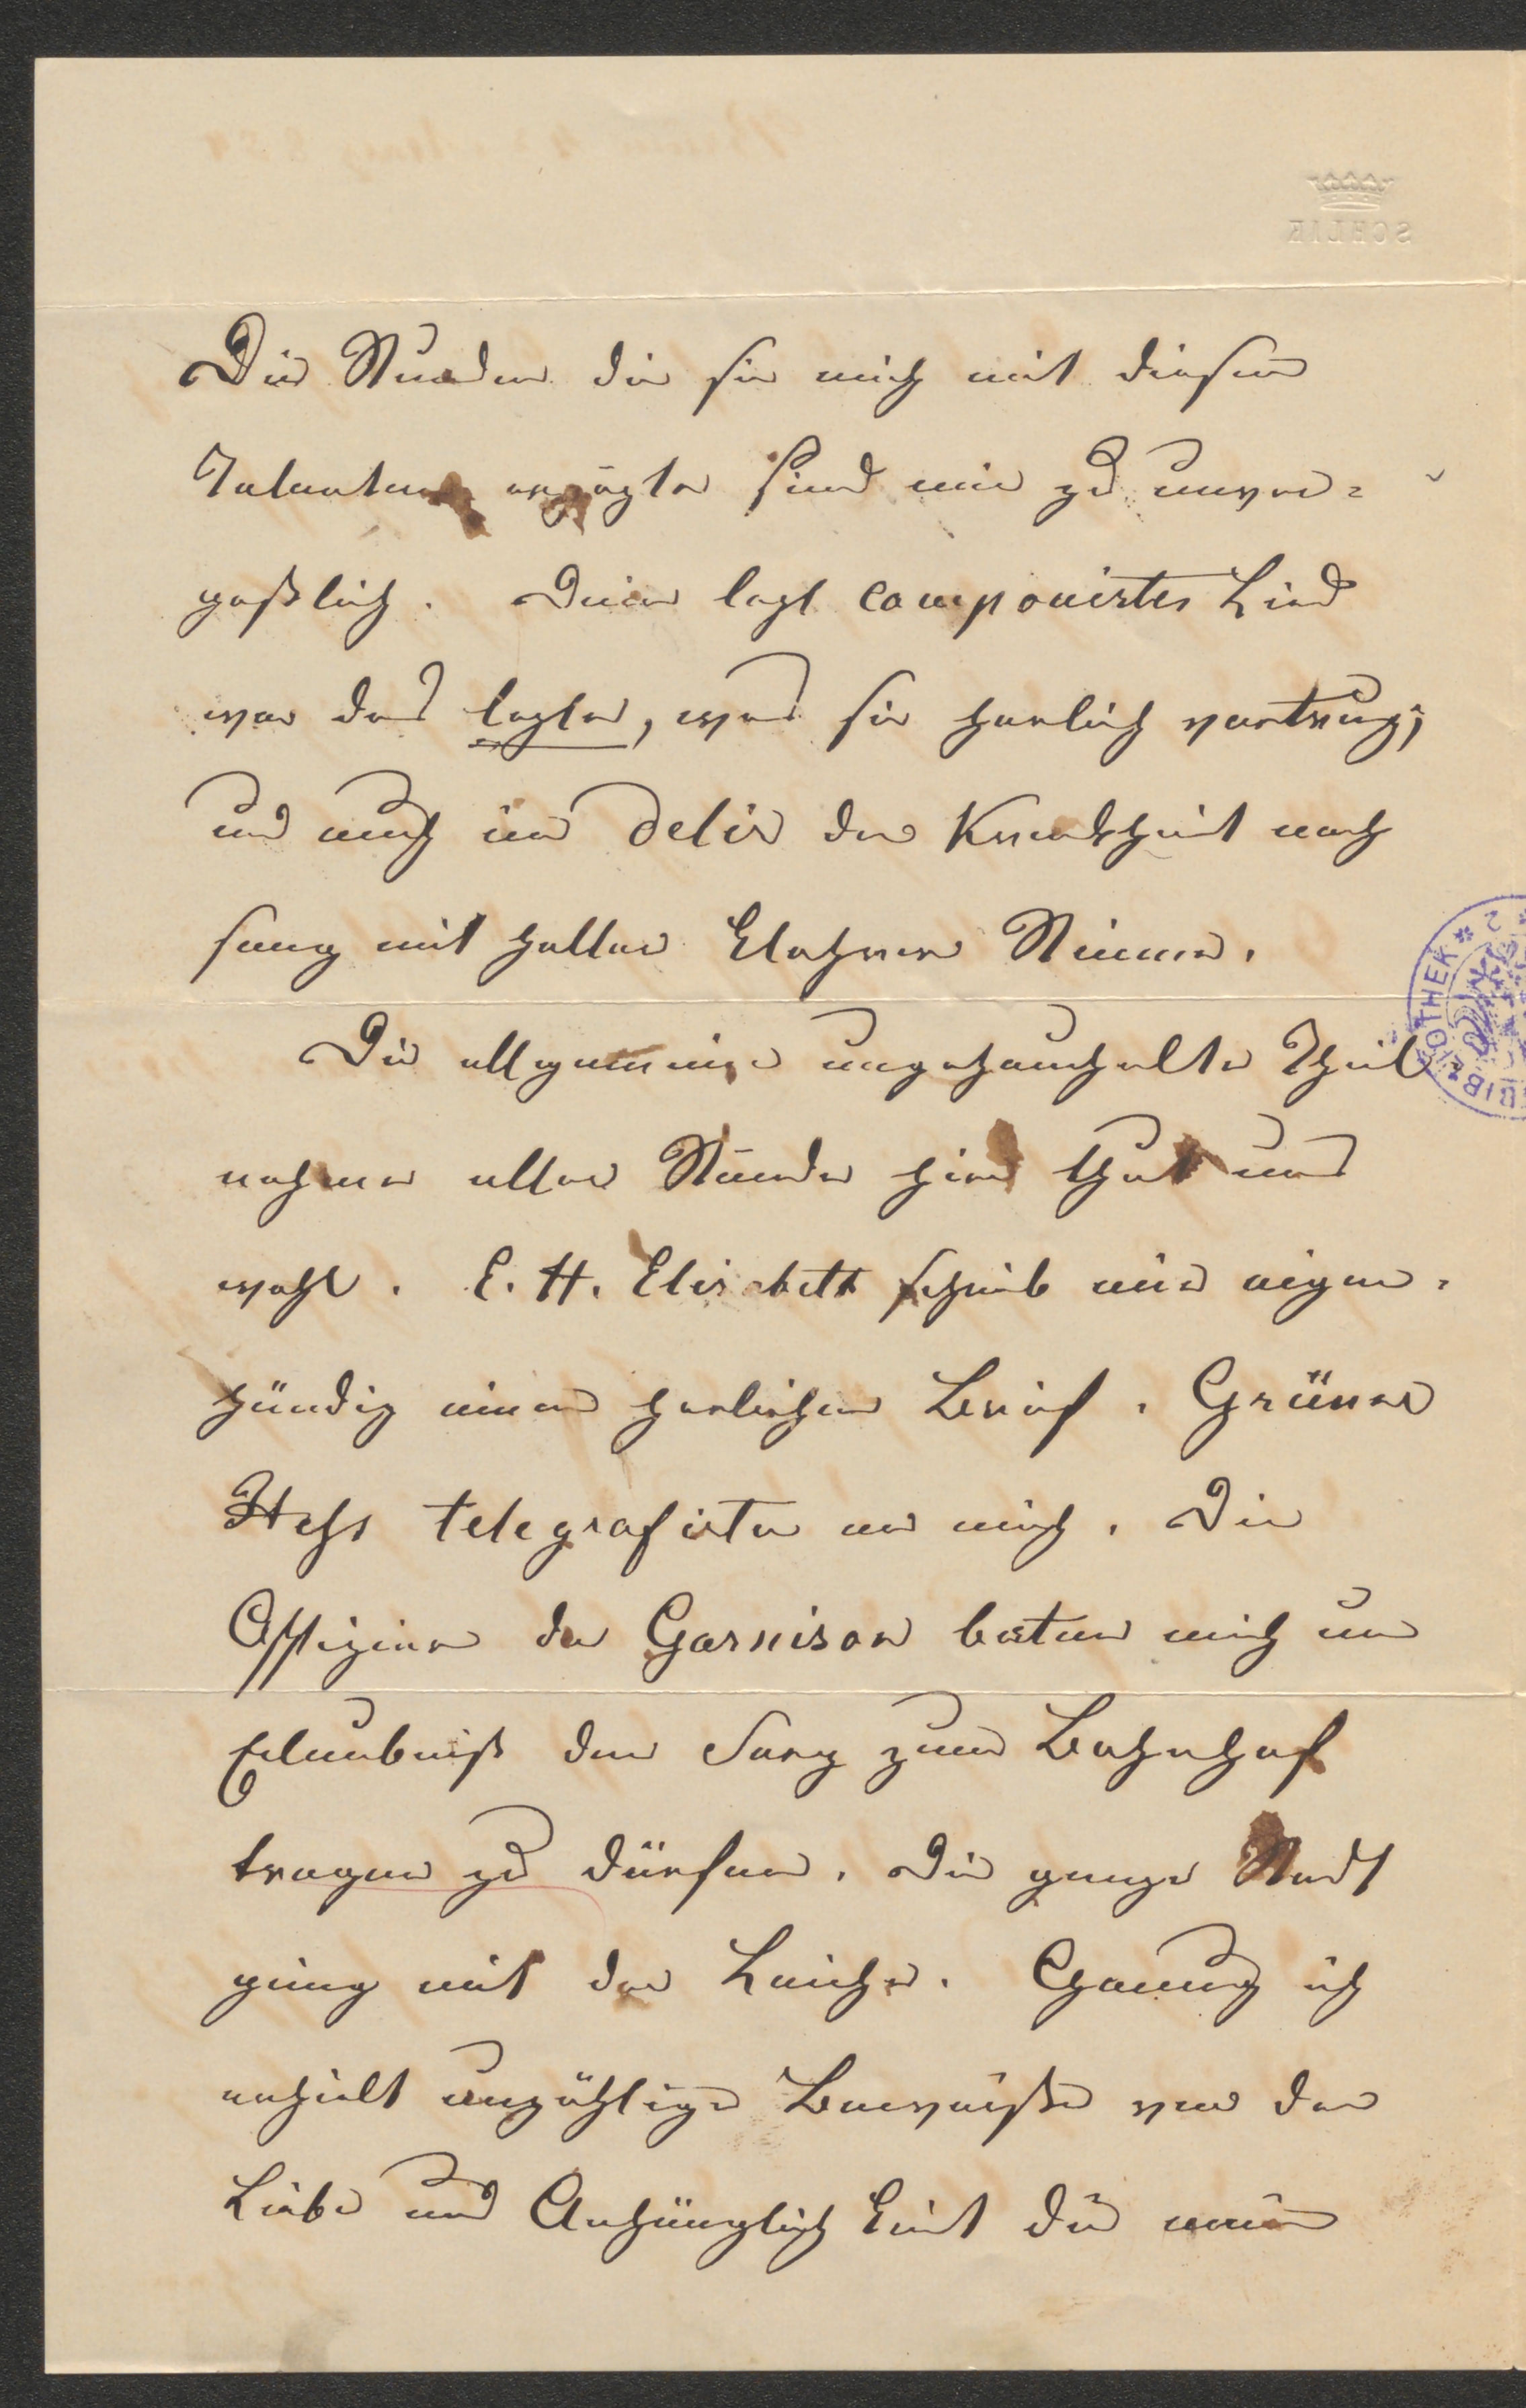 SCHLIK
Die Stunden die sie mich mit diesen
Talenten ergözte sind mir zu unver=
geßlich. Dein lezt componirtes Lied
war das lezte, was sie herlich vortrug;
und auch im Delir der Krankheit noch
sang mit heller klahrer Stimme.
Die allgemeine ungeheuchelte Theil
nahme aller Stände hier that uns
wohl. E. H. Elisabeth schrieb mir eigen=
händig einen herlichen Brief. Grünne
Hess telegrafirten an mich. Die
Offiziere der Garnison baten mich um
Erlaubniß den Sarg zum Bahnhof
tragen zu dürfen. Die ganze Stadt
ging mit der Leiche. Genug ich
erhielt unzählige Beweise von der
Liebe und Anhänglichkeit die meine
BIBLIOTHEK